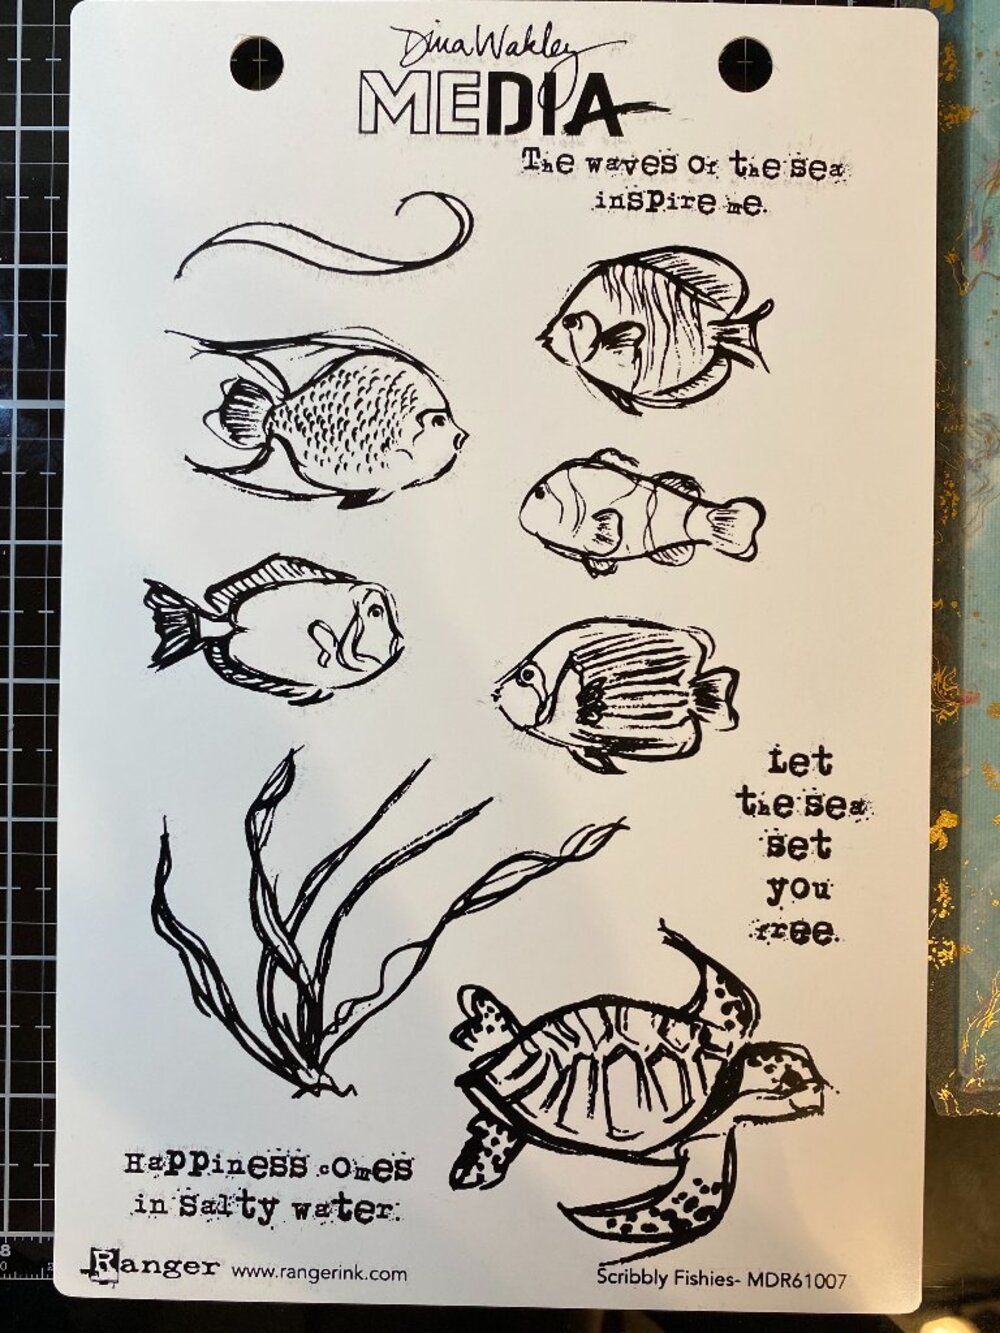 Dina Wakley
MEDIA
The waves of the sea
inspire me.
Let
the sea
set
you
free.
Happiness comes
in salty water.
Ranger www.rangerink.com
Scribbly Fishies- MDR61007
8
0